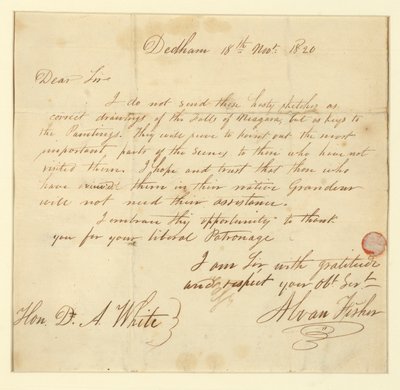 Dedham 18th Novr. 1820
Dear Sir
I do not send these hasty sketches as
correct drawings of the Falls of Niagara, but as keys to
the Paintings. They will serve to point out the most
important parts of the scenes to those who have not
visited them. I hope and trust that those who
have viewed them in their native Grandeur
will not need their assistance.
I embrace this opportunity to thank
you for your liberal Patronage
I am Sir with gratitude
and respect your Obt. Sert.
Alvan Fisher
Hon. D. A. White